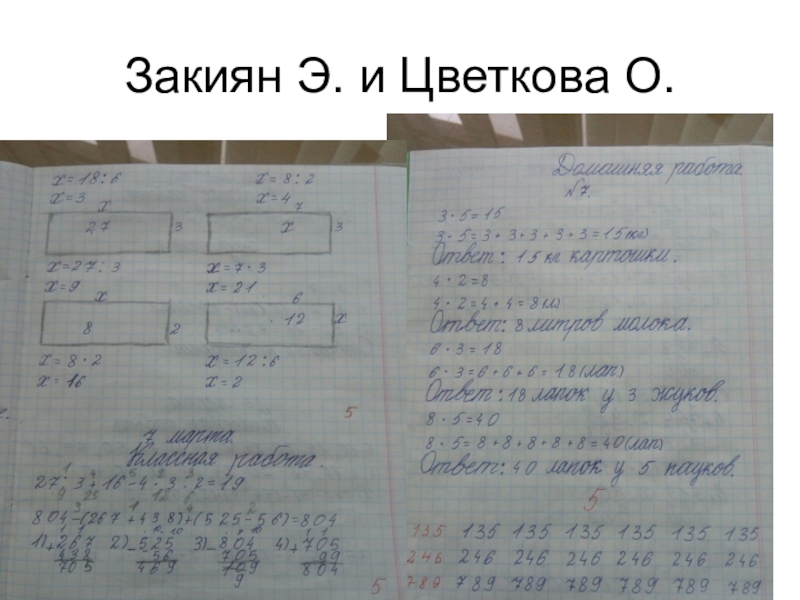 Закиян Э. и Цветкова О.
х = 18 : 6
х = 8 : 2
х = 3
х = 4
х
7
27
3
х
3
х = 27 : 3
х = 7 · 3
х = 9
х = 21
х
6
8
2
12
х
х = 8 · 2
х = 12 : 6
х = 16
х = 2
5
7 марта.
Классная работа.
27 : 3 + 16 - 4 · 3 : 2 = 19
804 - (267 + 438) + (525 - 56) = 804
1) + 267
438
705
2) - 525
56
469
3) - 804
705
109
9
4) + 705
99
804
5
Домашняя работа
№7.
3 · 5 = 15
3 · 5 = 3 + 3 + 3 + 3 + 3 = 15 (кг)
Ответ: 15 кг картошки.
4 · 2 = 8
4 · 2 = 4 + 4 = 8 (л)
Ответ: 8 литров молока.
6 · 3 = 18
6 · 3 = 6 + 6 + 6 = 18 (лап)
Ответ: 18 лапок у 3 жуков.
8 · 5 = 40
8 · 5 = 8 + 8 + 8 + 8 + 8 = 40 (лап)
Ответ: 40 лапок у 5 пауков.
5
135 135 135 135 135 135 135
246 246 246 246 246 246 246
789 789 789 789 789 789 789